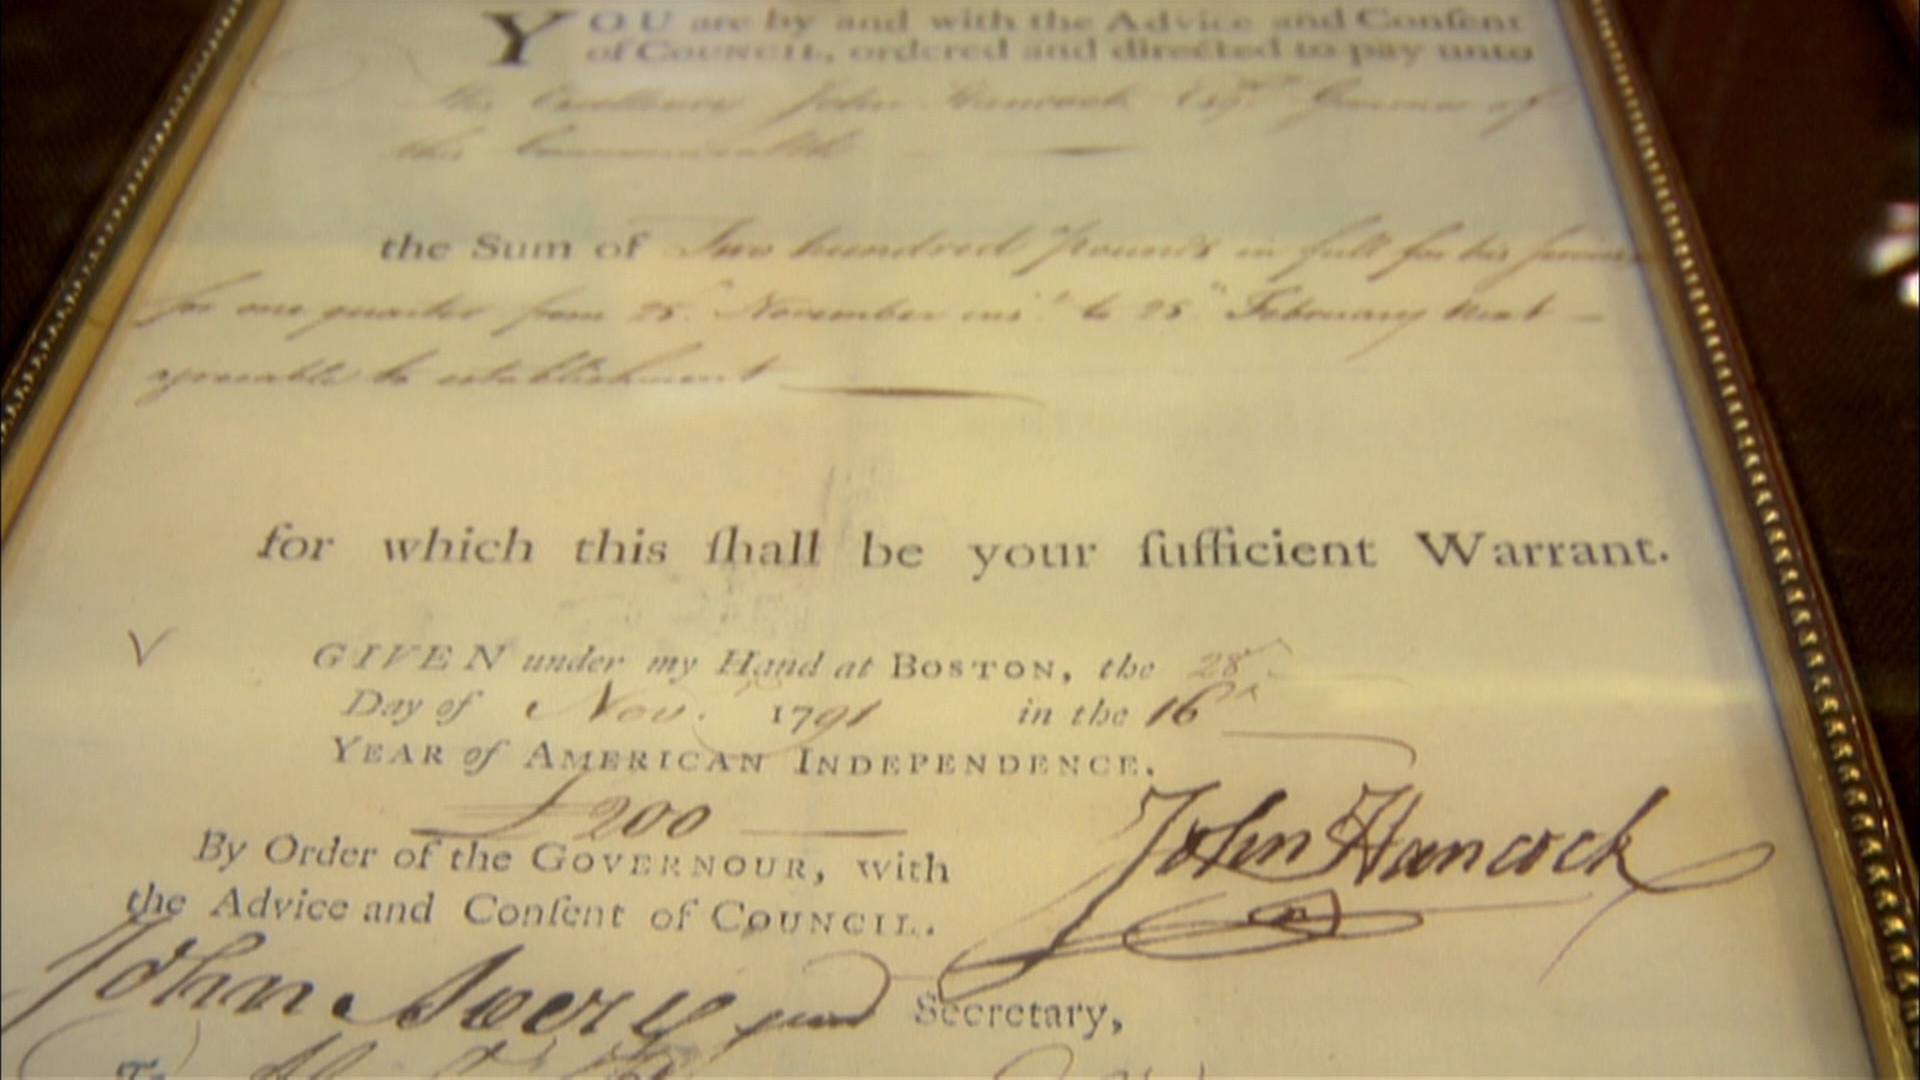 YOU are by and with the Advice and Conſent
of COUNCIL, ordered and directed to pay unto
His Excellency John Hancock Esqr. Governor of
this Commonwealth
the Sum of Two hundred pounds in full for his
for one quarter from 25th November to 25th February next
agreeable to establishment
for which this ſhall be your ſufficient Warrant.
GIVEN under my Hand at BOSTON, the 28th
Day of Nov. 1791 in the 16th
YEAR of AMERICAN INDEPENDENCE.
£200
John Hancock
By Order of the GOVERNOUR, with
the Advice and Conſent of COUNCIL.
John Avery jun Secretary,
To